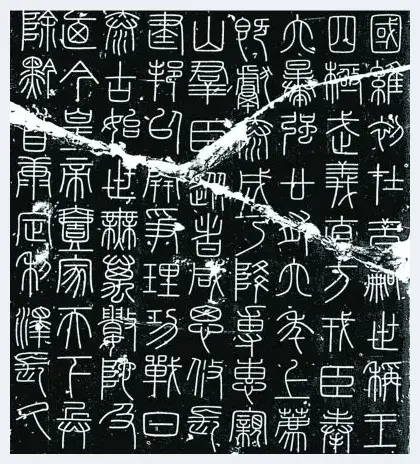 國維初在昔嗣世稱王
四極武義直方戎臣奉
六暴強廿有六年上薦
既獻泰成乃降專惠親
山群臣從者咸思攸長
建邦以開爭理功戰日
泰古始世無萬數陀及
乃今皇帝壹家天下兵
除黔首康定利澤長久